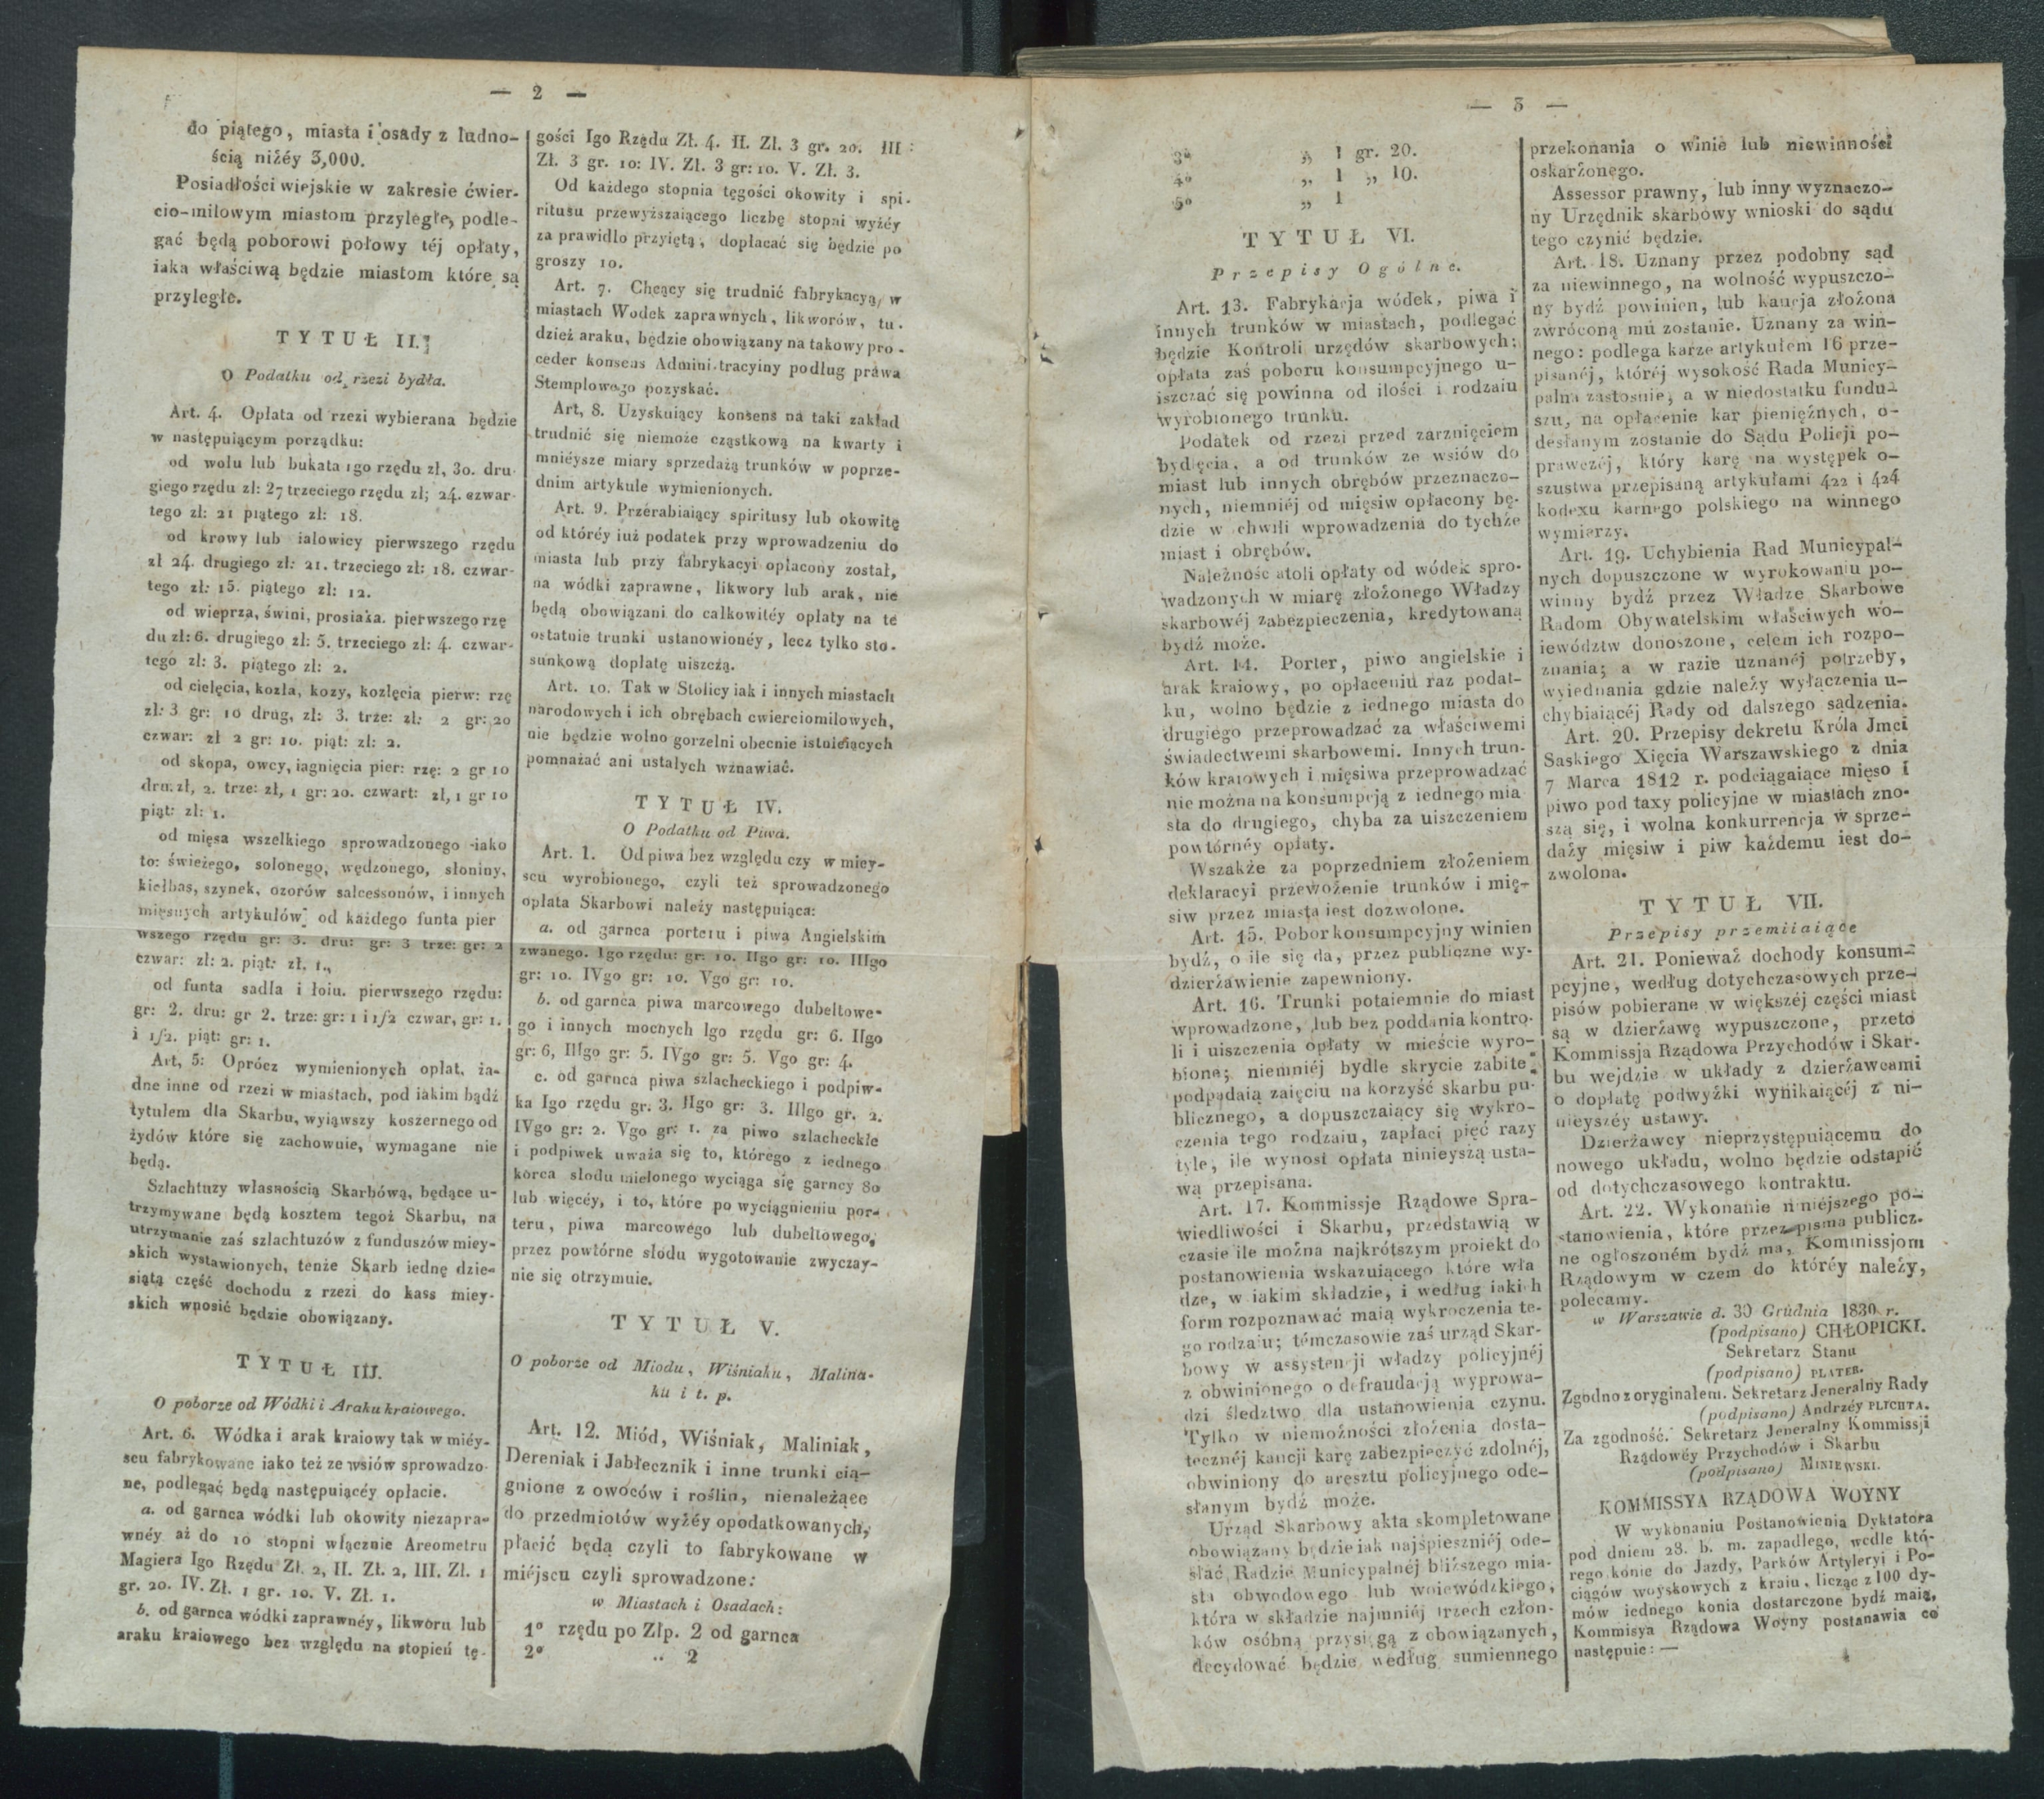 — 2 —
do piątego, miasta i osady z ludno-
ścią niźéy 3,000.
Posiadłości wiejskie w zakresie ćwier-
cio-milowym miastom przyległe, podle-
gać będą poborowi połowy téj opłaty,
iaka właściwą będzie miastom które są
przyległe.
TYTUŁ II.
O Podatku od rzezi bydła.
Art. 4. Opłata od rzezi wybierana będzie
w następuiącym porządku:
od wolu lub bukata 1go rzędu zł, 30. dru-
giego rzędu zł: 27 trzeciego rzędu zł; 24. czwar-
tego zł: 21 piątego zł: 18.
od krowy lub iałowicy pierwszego rzędu
zł 24. drugiego zł: 21. trzeciego zł: 18. czwar-
tego zł: 15. piątego zł: 12.
od wieprza, świni, prosiaka. pierwszego rzę
du zł: 6. drugiego zł: 5. trzeciego zł: 4. czwar-
tego zł: 3. piątego zł: 2.
od cielęcia, kozła, kozy, koźlęcia pierw: rzę
zł: 3 gr: 10 drug, zł: 3. trze: zł: 2 gr: 20
czwar: zł 2 gr: 10. piąt: zł: 2.
od skopa, owcy, iagnięcia pier: rzę: 2 gr 10
dru: zł, 2. trze: zł, 1 gr: 20. czwart: zł, 1 gr 10
piąt: zł: 1.
od mięsa wszelkiego sprowadzonego iako
to: świeżego, solonego, wędzonego, słoniny,
kiełbas, szynek, ozorów salcessonów, i innych
mięsnych artykułów od każdego funta pier
wszego rzędu gr: 3. dru: gr: 3 trze: gr: 2
czwar: zł: 2. piąt: zł, 1.,
od funta sadła i łoiu. pierwszego rzędu:
gr: 2. dru: gr 2. trze: gr: 1 i 1/2 czwar, gr: 1.
i 1/2. piąt: gr: 1.
Art, 5: Oprócz wymienionych opłat, ża-
dne inne od rzezi w miastach, pod iakim bądź
tytułem dla Skarbu, wyiąwszy koszernego od
żydów które się zachowuie, wymagane nie
będą.
Szlachtuzy własnością Skarbówą, będące u-
trzymywane będą kosztem tegoż Skarbu, na
utrzymanie zaś szlachtuzów z funduszów miey-
skich wystawionych, tenże Skarb iednę dzie-
siątą część dochodu z rzezi do kass miey-
skich wnosić będzie obowiązany.
TYTUŁ III.
O poborze od Wódki i Araku kraiowego.
Art. 6. Wódka i arak kraiowy tak w miéy-
scu fabrykowane iako też ze wsiów sprowadzo-
ne, podlegać będą następuiącéy opłacie.
a. od garnca wódki lub okowity niezapra-
wnéy aż do 10 stopni włącznie Areometru
Magiera Igo Rzędu Zł. 2, II. Zł. 2, III. Zł. 1
gr. 20. IV. Zł. 1 gr. 10. V. Zł. 1.
b. od garnca wódki zaprawnéy, likworu lub
araku kraiowego bez względu na stopień tę-
gości Igo Rzędu Zł. 4. II. Zł. 3 gr. 20. III:
Zł. 3 gr. 10: IV. Zł. 3 gr: 10. V. Zł. 3.
Od każdego stopnia tęgości okowity i spi-
ritusu przewyższaiącego liczbę stopni wyźéy
za prawidło przyiętą, dopłacać się będzie po
groszy 10.
Art. 7. Chcący się trudnić fabrykacyą, w
miastach Wodek zaprawnych, likworów, tu-
dzież araku, będzie obowiązany na takowy pro-
ceder konsens Admini-tracyiny podług prawa
Stemplowego pozyskać.
Art, 8. Uzyskuiący konsens na taki zakład
trudnić się niemoże cząstkową na kwarty i
mniéysze miary sprzedażą trunków w poprze-
dnim artykule wymienionych.
Art. 9. Przerabiaiący spiritusy lub okowitę
od któréy iuż podatek przy wprowadzeniu do
miasta lub przy fabrykacyi opłacony został,
na wódki zaprawne, likwory lub arak, nie
będą obowiązani do całkowitéy opłaty na te
ostatnie trunki ustanowionéy, lecz tylko sto-
sunkową dopłatę uiszczą.
Art. 10. Tak w Stolicy iak i innych miastach
narodowych i ich obrębach cwierciomilowych,
nie będzie wolno gorzelni obecnie istnieiących
pomnażać ani ustałych wznawiać.
TYTUŁ IV.
O Podatku od Piwa.
Art. 1. Od piwa bez względu czy w miey-
scu wyrobionego, czyli też sprowadzonego
opłata Skarbowi należy następuiąca:
a. od garnca porteru i piwa Angielskim
zwanego. Igo rzędu: gr: 10. IIgo gr: 10. IIIgo
gr: 10. IVgo gr: 10. Vgo gr: 10.
b. od garnca piwa marcowego dubeltowe-
go i innych mocnych Igo rzędu gr: 6. IIgo
gr: 6, IIIgo gr: 5. IVgo gr: 5. Vgo gr: 4.
c. od garnca piwa szlacheckiego i podpiw-
ka Igo rzędu gr. 3. IIgo gr: 3. IIIgo gr. 2.
IVgo gr: 2. Vgo gr: 1. za piwo szlacheckie
i podpiwek uważa się to, którego z iednego
korca słodu mielonego wyciąga się garncy 80
lub więcéy, i to, które po wyciągnieniu por-
teru, piwa marcowego lub dubeltowego,
przez powtórne słodu wygotowanie zwyczay-
nie się otrzymuie.
TYTUŁ V.
O poborze od Miodu, Wiśniaku, Malina-
ku i t. p.
Art. 12. Miód, Wiśniak, Maliniak,
Dereniak i Jabłecznik i inne trunki cią-
gnione z owoców i roślin, nienależące
do przedmiotów wyźéy opodatkowanych,
płacić będą czyli to fabrykowane w
miéjscu czyli sprowadzone:
w Miastach i Osadach:
1° rzędu po Złp. 2 od garnca
2° „ 2
— 3 —
3° „ 1 gr. 20.
4° „ 1 „ 10.
5° „ 1
TYTUŁ VI.
Przepisy Ogólne.
Art. 13. Fabrykacja wódek, piwa i
innych trunków w miastach, podlegać
będzie Kontroli urzędów skarbowych;
opłata zaś poboru konsumpcyjnego u-
iszczać się powinna od ilości i rodzaiu
wyrobionego trunku.
Podatek od rzezi przed zarznięciem
bydlęcia, a od trunków ze wsiów do
miast lub innych obrębów przeznaczo-
nych, niemniéj od mięsiw opłacony bę-
dzie w chwili wprowadzenia do tychże
miast i obrębów.
Należność atoli opłaty od wódek spro-
wadzonych w miarę złożonego Władzy
skarbowéj zabezpieczenia, kredytowaną
bydź może.
Art. 14. Porter, piwo angielskie i
arak kraiowy, po opłaceniu raz podat-
ku, wolno będzie z iednego miasta do
drugiego przeprowadzać za właściwemi
świadectwemi skarbowemi. Innych trun-
ków kraiowych i mięsiwa przeprowadzać
nie można na konsumpcją z iednego mia
sta do drugiego, chyba za uiszczeniem
powtórnéy opłaty.
Wszakże za poprzedniem złożeniem
deklaracyi przewożenie trunków i mię-
siw przez miasta iest dozwolone.
Art. 15. Pobor konsumpcyjny winien
bydź, o ile się da, przez publiczne wy-
dzierżawienie zapewniony.
Art. 16. Trunki potaiemnie do miast
wprowadzone, lub bez poddania kontro-
li i uiszczenia opłaty w mieście wyro-
bione; niemniéj bydle skrycie zabite
podpadaią zaięciu na korzyść skarbu pu-
blicznego, a dopuszczaiący się wykro-
czenia tego rodzaiu, zapłaci pięć razy
tyle, ile wynosi opłata ninieyszą usta-
wą przepisana.
Art. 17. Kommissje Rządowe Spra-
wiedliwości i Skarbu, przedstawią w
czasie ile można najkrótszym proiekt do
postanowienia wskazuiącego które wła
dze, w iakim składzie, i według iakich
form rozpoznawać maią wykroczenia te-
go rodzaiu; témczasowie zaś urząd Skar-
bowy w assystencji władzy policyjnéj
z obwinionego o defraudacją wyprowa-
dzi śledztwo dla ustanowienia czynu.
Tylko w niemożności złożenia dosta-
tecznéj kaucji karę zabezpieczyć zdolnéj,
obwiniony do aresztu policyjnego ode-
słanym bydź może.
Urząd Skarbowy akta skompletowane
obowiązany będzie iak najśpieszniéj ode-
słać Radzie Municypalnéj bliższego mia-
sta obwodowego lub woiewódzkiego,
która w składzie najmniéj trzech człon-
ków osóbną przysięgą zobowiązanych,
decydować będzie według sumiennego
przekonania o winie lub niewinności
oskarżonego.
Assessor prawny, lub inny wyznaczo-
ny Urzędnik skarbowy wnioski do sądu
tego czynić będzie.
Art. 18. Uznany przez podobny sąd
za niewinnego, na wolność wypuszczo-
ny bydź powinien, lub kaucja złożona
zwróconą mu zostanie. Uznany za win-
nego: podlega karze artykułem 16 prze-
pisanéj, któréj wysokość Rada Municy-
palna zastosuie, a w niedostatku fundu-
szu, na opłacenie kar pieniężnych, o-
desłanym zostanie do Sądu Policji po-
prawczéj, który karę na występek o-
szustwa przepisaną artykułami 422 i 424
kodexu karnego polskiego na winnego
wymierzy.
Art. 19. Uchybienia Rad Municypal-
nych dopuszczone w wyrokowaniu po-
winny bydź przez Władze Skarbowe
Radom Obywatelskim właściwych wo-
iewództw donoszone, celem ich rozpo-
znania; a w razie uznanéj potrzeby,
wyiednania gdzie należy wyłączenia u-
chybiaiącéj Rady od dalszego sądzenia.
Art. 20. Przepisy dekretu Króla Jmci
Saskiego Xięcia Warszawskiego z dnia
7 Marca 1812 r. podciągaiące mięso i
piwo pod taxy policyjne w miastach zno-
szą się, i wolna konkurrencja w sprze-
daży mięsiw i piw każdemu iest do-
zwolona.
TYTUŁ VII.
Przepisy przemiiaiące
Art. 21. Ponieważ dochody konsum-
pcyjne, według dotychczasowych prze-
pisów pobierane w większéj części miast
są w dzierżawę wypuszczone, przeto
Kommissja Rządowa Przychodów i Skar-
bu wejdzie w układy z dzierżawcami
o dopłatę podwyżki wynikaiącéj z ni-
nieyszéy ustawy.
Dzierżawcy nieprzystępuiącemu do
nowego układu, wolno będzie odstąpić
od dotychczasowego kontraktu.
Art. 22. Wykonanie niniéjszego po-
stanowienia, które przez pisma publicz-
ne ogłoszoném bydź ma, Kommissjom
Rządowym w czem do któréy należy,
polecamy.
w Warszawie d. 30 Grudnia 1830 r.
(podpisano) CHŁOPICKI.
Sekretarz Stanu
(podpisano) PLATER.
Zgodno z oryginałem. Sekretarz Jeneralny Rady
(podpisano) Andrzéy PLICHTA.
Za zgodność. Sekretarz Jeneralny Kommissji
Rządowéy Przychodów i Skarbu
(podpisano) MINIEWSKI.
KOMMISSYA RZĄDOWA WOYNY
W wykonaniu Postanowienia Dyktatora
pod dniem 28. b. m. zapadłego, wedle któ-
rego konie do Jazdy, Parków Artyleryi i Po-
ciągów woyskowych z kraiu, licząc z 100 dy-
mów iednego konia dostarczone bydź maią,
Kommisya Rządowa Woyny postanawia co
następuie: —